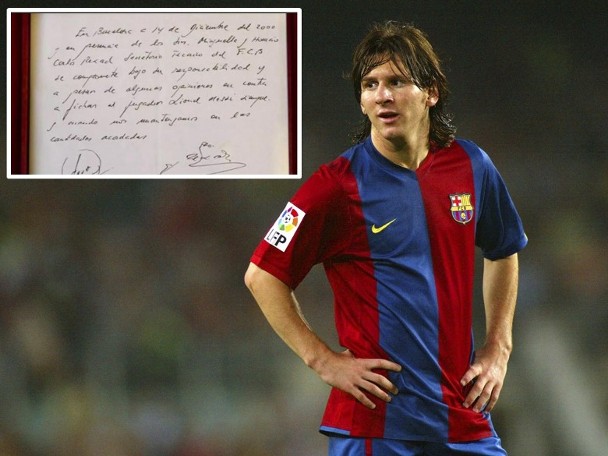 En Barcelona a 14 de Diciembre del 2000
y en presencia de los Srs. Minguella y Horacio
Carlo Rexach Secretario Tecnico del F.C.B
se compromete bajo su responsabilidad y
a pesar de algunas opiniones en contra
a fichar al jugador Lionel Messi siempre
y cuando nos mantengamos en las
cantidades acordadas
LFP